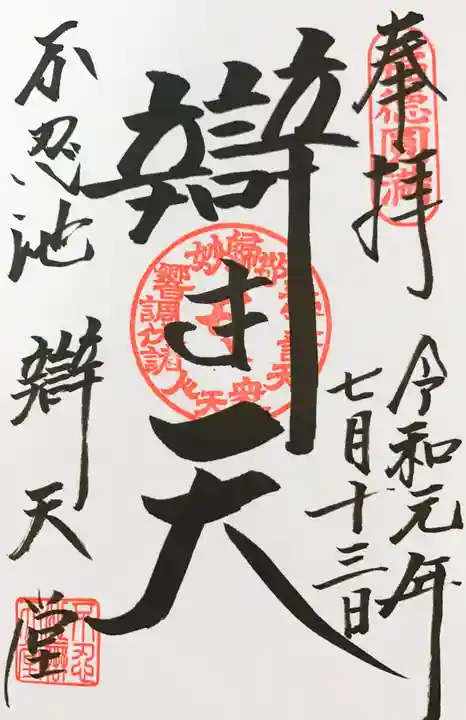 奉拝
令和元年
七月十三日
辯才天
不忍池 辯天堂